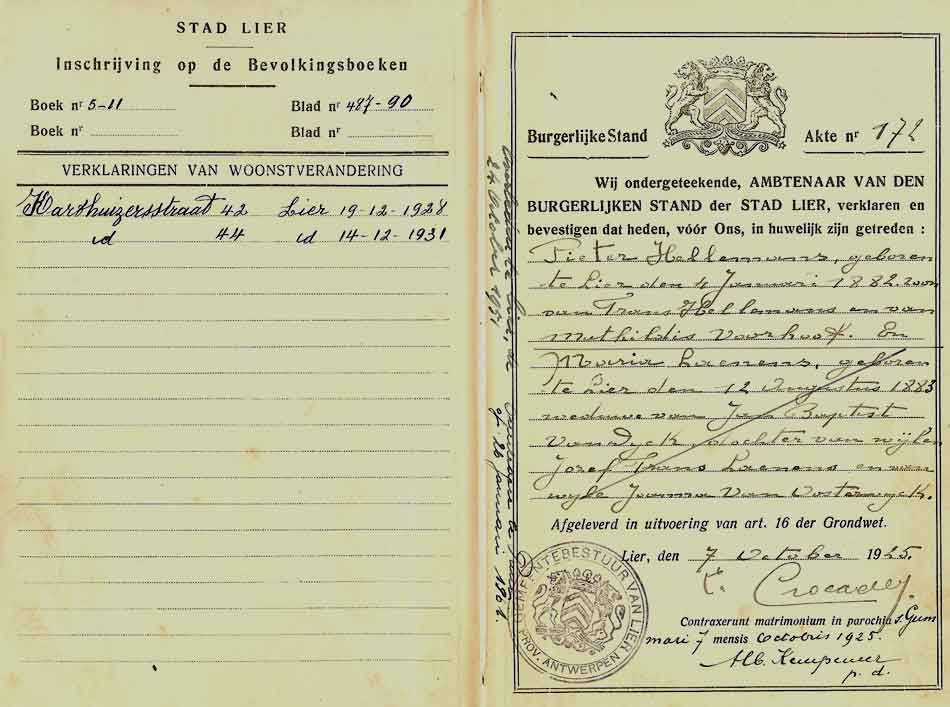 STAD LIER
Inschrijving op de Bevolkingsboeken
Boek nr 5-11 Blad nr 487-90
Boek nr Blad nr
VERKLARINGEN VAN WOONSTVERANDERING
Karthuizersstraat 42 Lier 19-12-1928
id 44 id 14-12-1931
te Lier, de
24 October 1951
of 26 januari 1901.
Burgerlijke Stand Akte nr 172
Wij ondergeteekende, AMBTENAAR VAN DEN
BURGERLIJKEN STAND der STAD LIER, verklaren en
bevestigen dat heden, vóór Ons, in huwelijk zijn getreden :
Pieter Hellemans, geboren
te Lier den 4 Januari 1882 zoon
van Frans Hellemans en van
Mathildis Voorhoof. En
Maria Laenens, geboren
te Lier den 12 Augustus 1883
weduwe van Jan Baptist
Van Dyck, dochter van wijlen
Jozef Frans Laenens en van
wyle Joanna Van Oosterwyck.
Afgeleverd in uitvoering van art. 16 der Grondwet.
Lier, den 7 October 1925.
GEMEENTEBESTUUR VAN LIER
PROV. ANTWERPEN
Contraxerunt matrimonium in parochia s. Gum
mari 7 mensis Octobris 1925.
p. d.